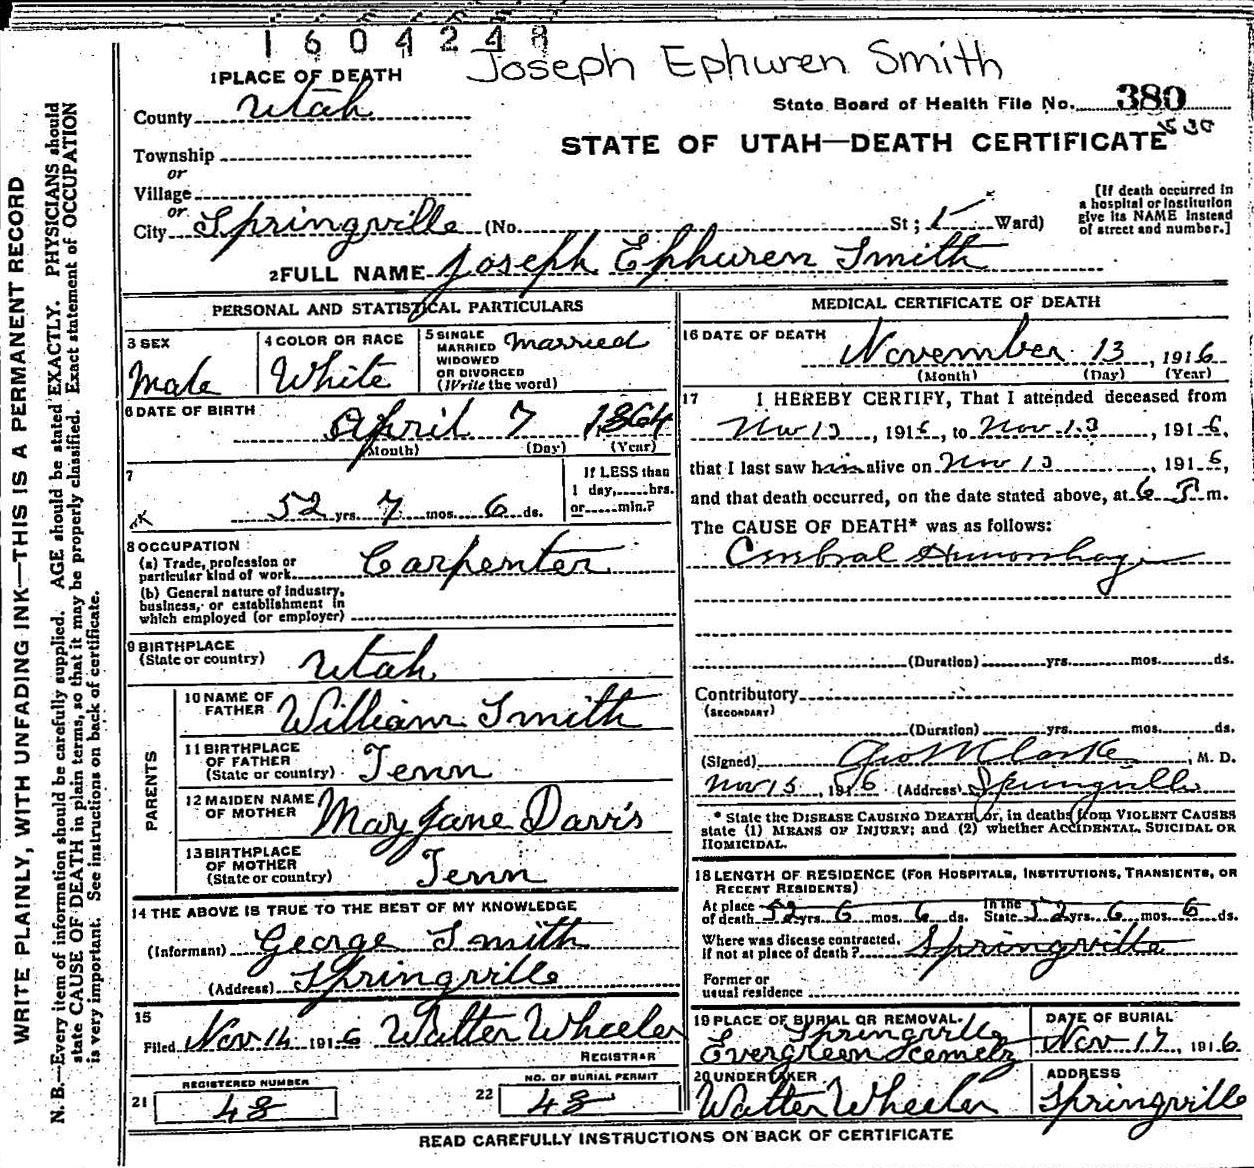 1604248
Joseph Ephuren Smith
1 PLACE OF DEATH
County Utah
State Board of Health File No. 380
530
STATE OF UTAH—DEATH CERTIFICATE
Township
or
Village
or
City Springville (No. St; 1 Ward)
[If death occurred in
a hospital or institution
give its NAME instead
of street and number.]
2 FULL NAME Joseph Ephuren Smith
PERSONAL AND STATISTICAL PARTICULARS
3 SEX
Male
4 COLOR OR RACE
White
5 SINGLE
MARRIED
WIDOWED
OR DIVORCED
(Write the word)
Married
6 DATE OF BIRTH
April 7 1864
(Month) (Day) (Year)
7
52 yrs. 7 mos. 6 ds.
If LESS than
1 day,.....hrs.
or.....min.?
8 OCCUPATION
(a) Trade, profession or
particular kind of work Carpenter
(b) General nature of industry,
business, or establishment in
which employed (or employer)
9 BIRTHPLACE
(State or country) Utah
PARENTS
10 NAME OF
FATHER William Smith
11 BIRTHPLACE
OF FATHER
(State or country) Tenn
12 MAIDEN NAME
OF MOTHER Mary Jane Davis
13 BIRTHPLACE
OF MOTHER
(State or country) Tenn
14 THE ABOVE IS TRUE TO THE BEST OF MY KNOWLEDGE
(Informant) George Smith
(Address) Springville
15
Filed Nov 14 1916 Walter Wheeler
REGISTRAR
REGISTERED NUMBER
21 48
NO. OF BURIAL PERMIT
22 48
MEDICAL CERTIFICATE OF DEATH
16 DATE OF DEATH
November 13, 1916
(Month) (Day) (Year)
17 I HEREBY CERTIFY, That I attended deceased from
Nov 13, 1916, to Nov 13, 1916,
that I last saw him alive on Nov 13, 1916,
and that death occurred, on the date stated above, at 6 P. m.
The CAUSE OF DEATH* was as follows:
Cerebral Hemorrhage
(Duration) yrs. mos. ds.
Contributory
(SECONDARY)
(Duration) yrs. mos. ds.
(Signed) Geo W Clarke, M. D.
Nov 15, 1916 (Address) Springville
* State the DISEASE CAUSING DEATH, or, in deaths from VIOLENT CAUSES
state (1) MEANS OF INJURY; and (2) whether ACCIDENTAL, SUICIDAL OR
HOMICIDAL.
18 LENGTH OF RESIDENCE (FOR HOSPITALS, INSTITUTIONS, TRANSIENTS, OR
RECENT RESIDENTS)
At place In the
of death 52 yrs. 6 mos. 6 ds. State 52 yrs. 6 mos. 6 ds.
Where was disease contracted,
if not at place of death? Springville
Former or
usual residence
19 PLACE OF BURIAL OR REMOVAL
Springville
Evergreen
DATE OF BURIAL
Nov 17, 1916
20 UNDERTAKER
Walter Wheeler
ADDRESS
Springville
READ CAREFULLY INSTRUCTIONS ON BACK OF CERTIFICATE
WRITE PLAINLY, WITH UNFADING INK—THIS IS A PERMANENT RECORD
N. B.—Every item of information should be carefully supplied. AGE should be stated EXACTLY. PHYSICIANS should
state CAUSE OF DEATH in plain terms, so that it may be properly classified. Exact statement of OCCUPATION
is very important. See instructions on back of certificate.